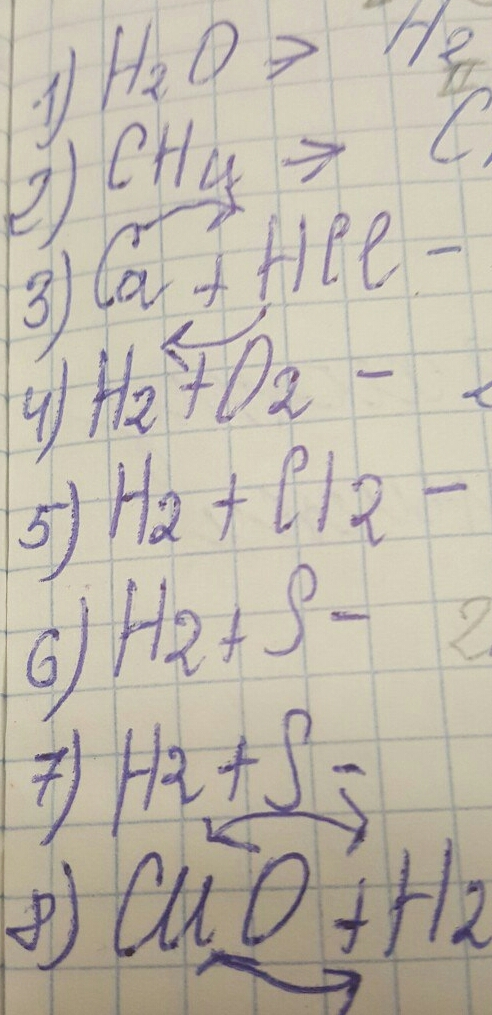 1) H2O → H2
2) CH4 →
3) Ca + HCl -
4) H2 + O2 -
5) H2 + Cl2 -
6) H2 + S -
7) H2 + S -
8) CuO + H2